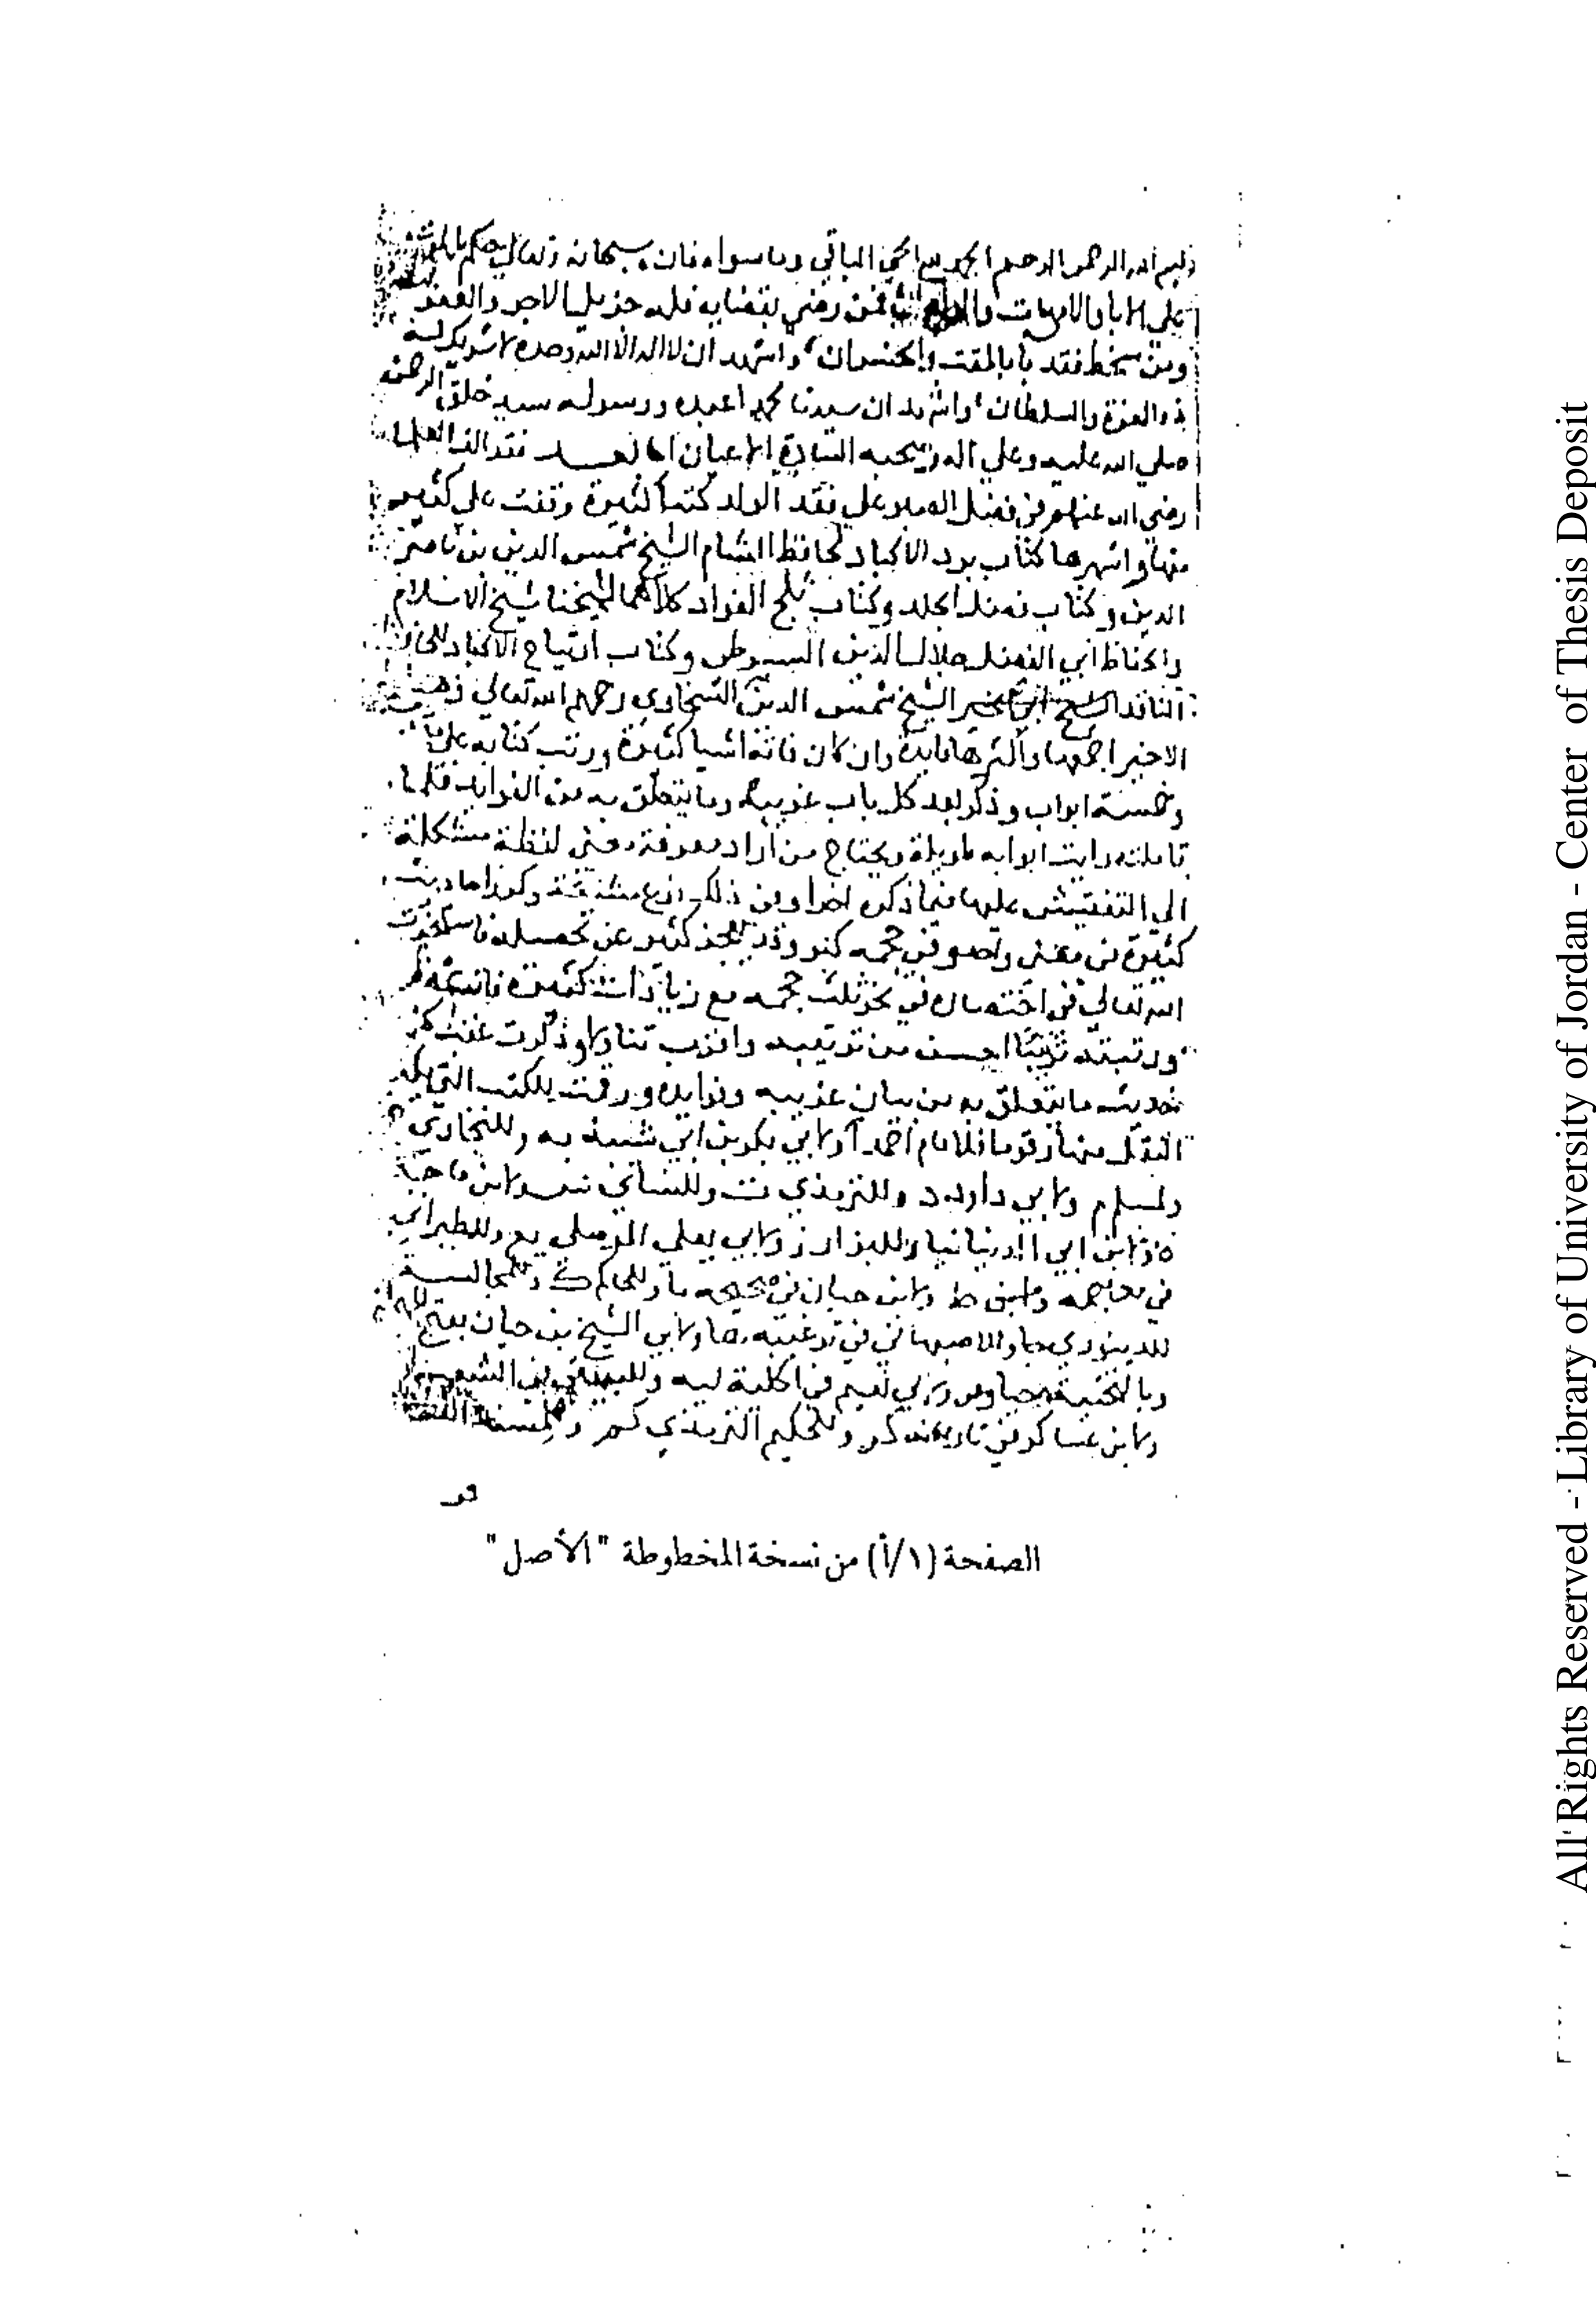 بسم الله الرحمن الرحيم الحمد لله الحي الباقي وما سواه فان سبحانه وتعالى حكم بالموت
علي الابا والامهات فمن رضي بقضايه فله جزيل الاجر والغفران
ومن سخط فقد با بالمقت والخسران واشهد ان لا اله الا الله وحده لا شريك له
ذو العزة والسلطان واشهد ان سيدنا محمدا عبده ورسوله سيد خلق الرحمن
صلي الله عليه وعلي اله وصحبه السادة الاعيان اما بعد فقد الف العلما
رضي الله عنهم في فضل الصبر علي فقد الولد كتبا كثيرة وقفت علي كثير
منها واشهرها كتاب برد الاكباد لحافظ الشام الشيخ شمس الدين بن ناصر
الدين وكتاب فضل الجلد وكتاب ثلج الفواد كلاهما لشيخنا شيخ الاسلام
والحفاظ ابي الفضل جلال الدين السيوطي وكتاب ارتياح الاكباد للحافظ
الناقد الشيخ شمس الدين السخاوي رحمهم الله تعالي
الاخير اجمعها واكثرها فايدة وان كان فاته اشيا كثيرة ورتب كتابه علي
وخمسة ابواب وذكر بعد كل باب غريبه وما يتعلق به من الفوايد فلما
تاملته رايت ابوابه طويلة ويحتاج من اراد معرفة معني لفظة مشكلة
الي التفتيش عليها فيما ذكره اخرا ومن ذلك نوع مشقة وكرر احاديث
كثيرة في معني واحد وفي حجمه كبر وقد يعجز كثير عن تحصيله فاستخرت
الله تعالي في اختصاره في نحو ثلث حجمه مع زيادات كثيرة
ورتبته ترتيبا احسن من ترتيبه واقرب تناولا وذكرت عقب كل
حديث ما يتعلق به من بيان غريبه وفوايده ورقمت للكتب التي
النقل منها رقوما فللامام احمد آ ولابي بكر بن ابي شيبة به وللبخاري خ
ولمسلم م ولابي داود د وللترمذي ت وللنساي ن ولابن ماجة
ه ولابن ابي الدنيا نيا وللبزار ز ولابي يعلي الموصلي يع وللطبراني
في معاجمه ط ولابن حبان في صحيحه وللحاكم ك وللمجالسة
للدينوري جا وللاصبهاني في ترغيبه صا ولابي الشيخ بن حيان بفتح
وبالتحتية حيا ولابي نعيم في الحلية ليه وللبيهقي في الشعب
ولابن عساكر في تاريخه كر وللحكيم الترمذي كم ولمسند
الصفحة (١/أ) من نسخة المخطوطة "الأصل"
All Rights Reserved - Library of University of Jordan - Center of Thesis Deposit